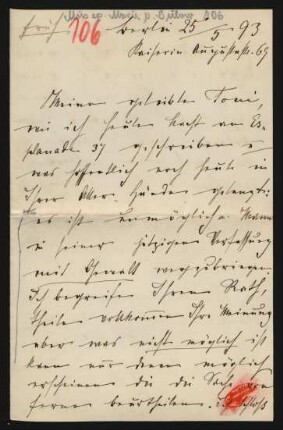 früh 106 Berlin 25/5 93
Kaiserin Augustastr. 69
Meine geliebte Toni,
wie ich heute Nacht an Es-
planade 37 geschrieben u
was hoffentlich noch heute in
Ihrer Aller Hände gelangt:
es ist unmöglich Mann
in seiner jetzigen Verfassung
mit Gewalt wegzubringen.
Ich begreife Ihren Rath,
theile vollkommen Ihre Meinung
aber was nicht möglich ist
kann nur denen möglich
erscheinen die die Sache von
ferne beurtheilen.